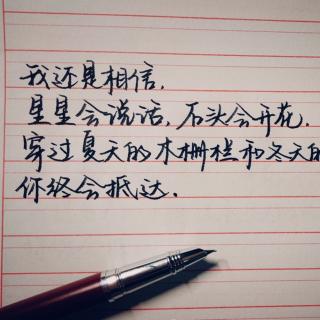 我还是相信.
星星会说话,石头会开花.
穿过夏天的木栅栏和冬天的
你终会抵达.